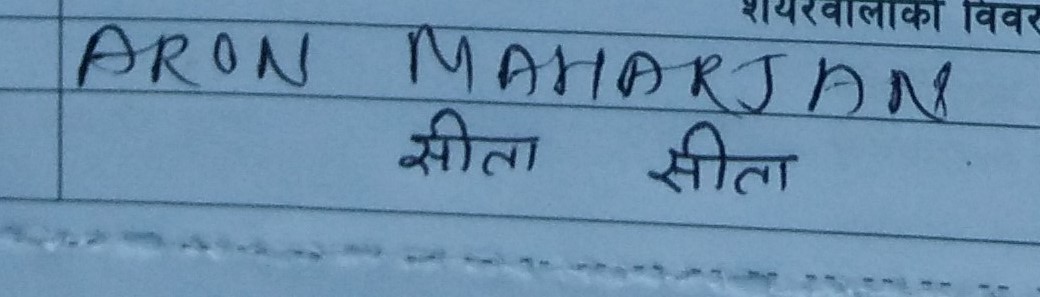 शेयरवालाको विवर
ARON MAHARJAN
सीता सीता